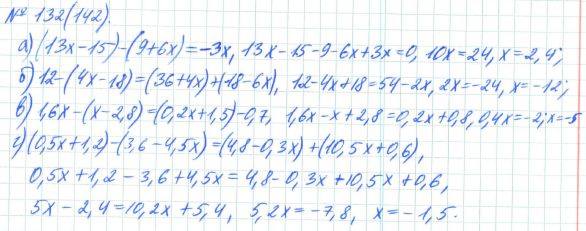 № 132(142).
а) (13x-15)-(9+6x)=-3x, 13x-15-9-6x+3x=0, 10x=24, x=2,4;
б) 12-(4x-18)=(36+4x)+(18-6x), 12-4x+18=54-2x, 2x=-24, x=-12;
в) 1,6x-(x-2,8)=(0,2x+1,5)-0,7, 1,6x-x+2,8=0,2x+0,8, 0,4x=-2; x=-5
г) (0,5x+1,2)-(3,6-4,5x)=(4,8-0,3x)+(10,5x+0,6),
0,5x+1,2-3,6+4,5x=4,8-0,3x+10,5x+0,6,
5x-2,4=10,2x+5,4, 5,2x=-7,8, x=-1,5.